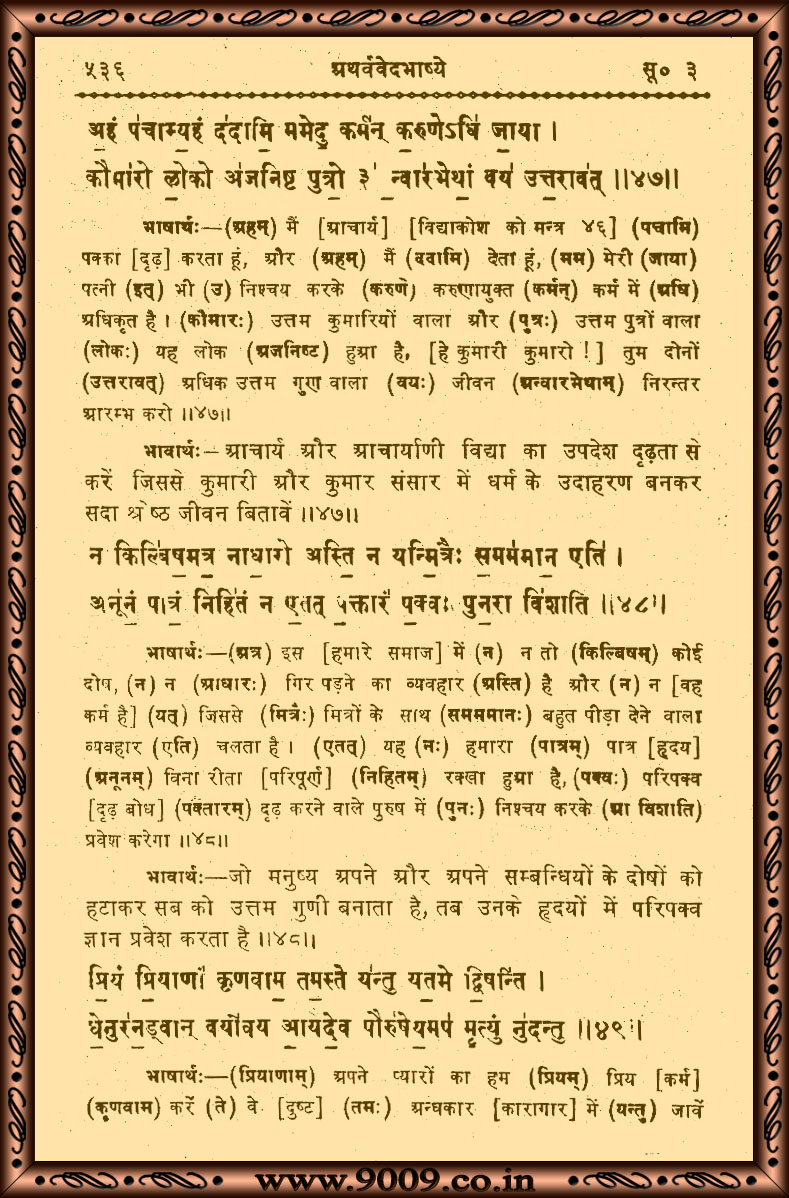 ५३६ अथर्ववेदभाष्ये सू० ३
अ॒हं प॑चाम्य॒हं द॑दामि॒ ममेदु॒ कर्म॑न् क॒रुणेऽधि॑ जा॒या ।
कौमा॑रो लो॒को अ॑जनिष्ट पु॒त्रो ३॒॑ न्वार॑भेथां॒ वय॑ उत्त॒राव॑त् ॥४७॥
भाषार्थः—(अहम्) मैं [आचार्य] [विद्याकोश को मन्त्र ४६] (पचामि)
पक्का [दृढ़] करता हूं, और (अहम्) मैं (ददामि) देता हूं, (मम) मेरी (जाया)
पत्नी (इत्) भी (उ) निश्चय करके (करुणे) करुणायुक्त (कर्मन्) कर्म में (अधि)
अधिकृत है । (कौमारः) उत्तम कुमारियों वाला और (पुत्रः) उत्तम पुत्रों वाला
(लोकः) यह लोक (अजनिष्ट) हुआ है, [हे कुमारी कुमारो !] तुम दोनों
(उत्तरावत्) अधिक उत्तम गुण वाला (वयः) जीवन (अन्वारभेथाम्) निरन्तर
आरम्भ करो ॥४७॥
भावार्थः—आचार्य और आचार्याणी विद्या का उपदेश दृढ़ता से
करें जिससे कुमारी और कुमार संसार में धर्म के उदाहरण बनकर
सदा श्रेष्ठ जीवन बितावें ॥४७॥
न किल्बि॑ष॒मत्र॒ नाधा॒रो अस्ति॒ न यन्मि॒त्रैः स॒मम॑मान॒ एति॑ ।
अनू॑नं॒ पात्रं॒ निहि॑तं न ए॒तत् प॒क्तारं॑ प॒क्वः पुन॒रा वि॑शाति ॥४८॥
भाषार्थः—(अत्र) इस [हमारे समाज] में (न) न तो (किल्बिषम्) कोई
दोष, (न) न (आधारः) गिर पड़ने का व्यवहार (अस्ति) है और (न) न [वह
कर्म है] (यत्) जिससे (मित्रैः) मित्रों के साथ (समममानः) बहुत पीड़ा देने वाला
व्यवहार (एति) चलता है । (एतत्) यह (नः) हमारा (पात्रम्) पात्र [हृदय]
(अनूनम्) विना रीता [परिपूर्ण] (निहितम्) रक्खा हुआ है, (पक्वः) परिपक्व
[दृढ़ बोध] (पक्तारम्) दृढ़ करने वाले पुरुष में (पुनः) निश्चय करके (आ विशाति)
प्रवेश करेगा ॥४८॥
भावार्थः—जो मनुष्य अपने और अपने सम्बन्धियों के दोषों को
हटाकर सब को उत्तम गुणी बनाता है, तब उनके हृदयों में परिपक्व
ज्ञान प्रवेश करता है ॥४८॥
प्रि॒यं प्रि॒याणां॑ कृणवाम॒ तम॒स्ते य॑न्तु यत॒मे द्वि॒षन्ति॑ ।
धे॒नुर॑न॒ड्वान् वयो॑वय आ॒यदे॒व पौरु॑षेय॒मप॑ मृ॒त्युं नु॑दन्तु ॥४९॥
भाषार्थः—(प्रियाणाम्) अपने प्यारों का हम (प्रियम्) प्रिय [कर्म]
(कृणवाम) करें (ते) वे [दुष्ट] (तमः) अन्धकार [कारागार] में (यन्तु) जावें
www.9009.co.in